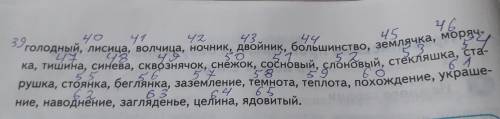 40 41 42 43 44 45 46
39 голодный, лисица, волчица, ночник, двойник, большинство, землячка, моряч-
47 48 49 50 51 52 53 54
ка, тишина, синева, сквознячок, снежок, сосновый, слоновый, стекляшка, ста-
55 56 57 58 59 60 61
рушка, стоянка, беглянка, заземление, темнота, теплота, похождение, украше-
62 63 64 65
ние, наводнение, загляденье, целина, ядовитый.